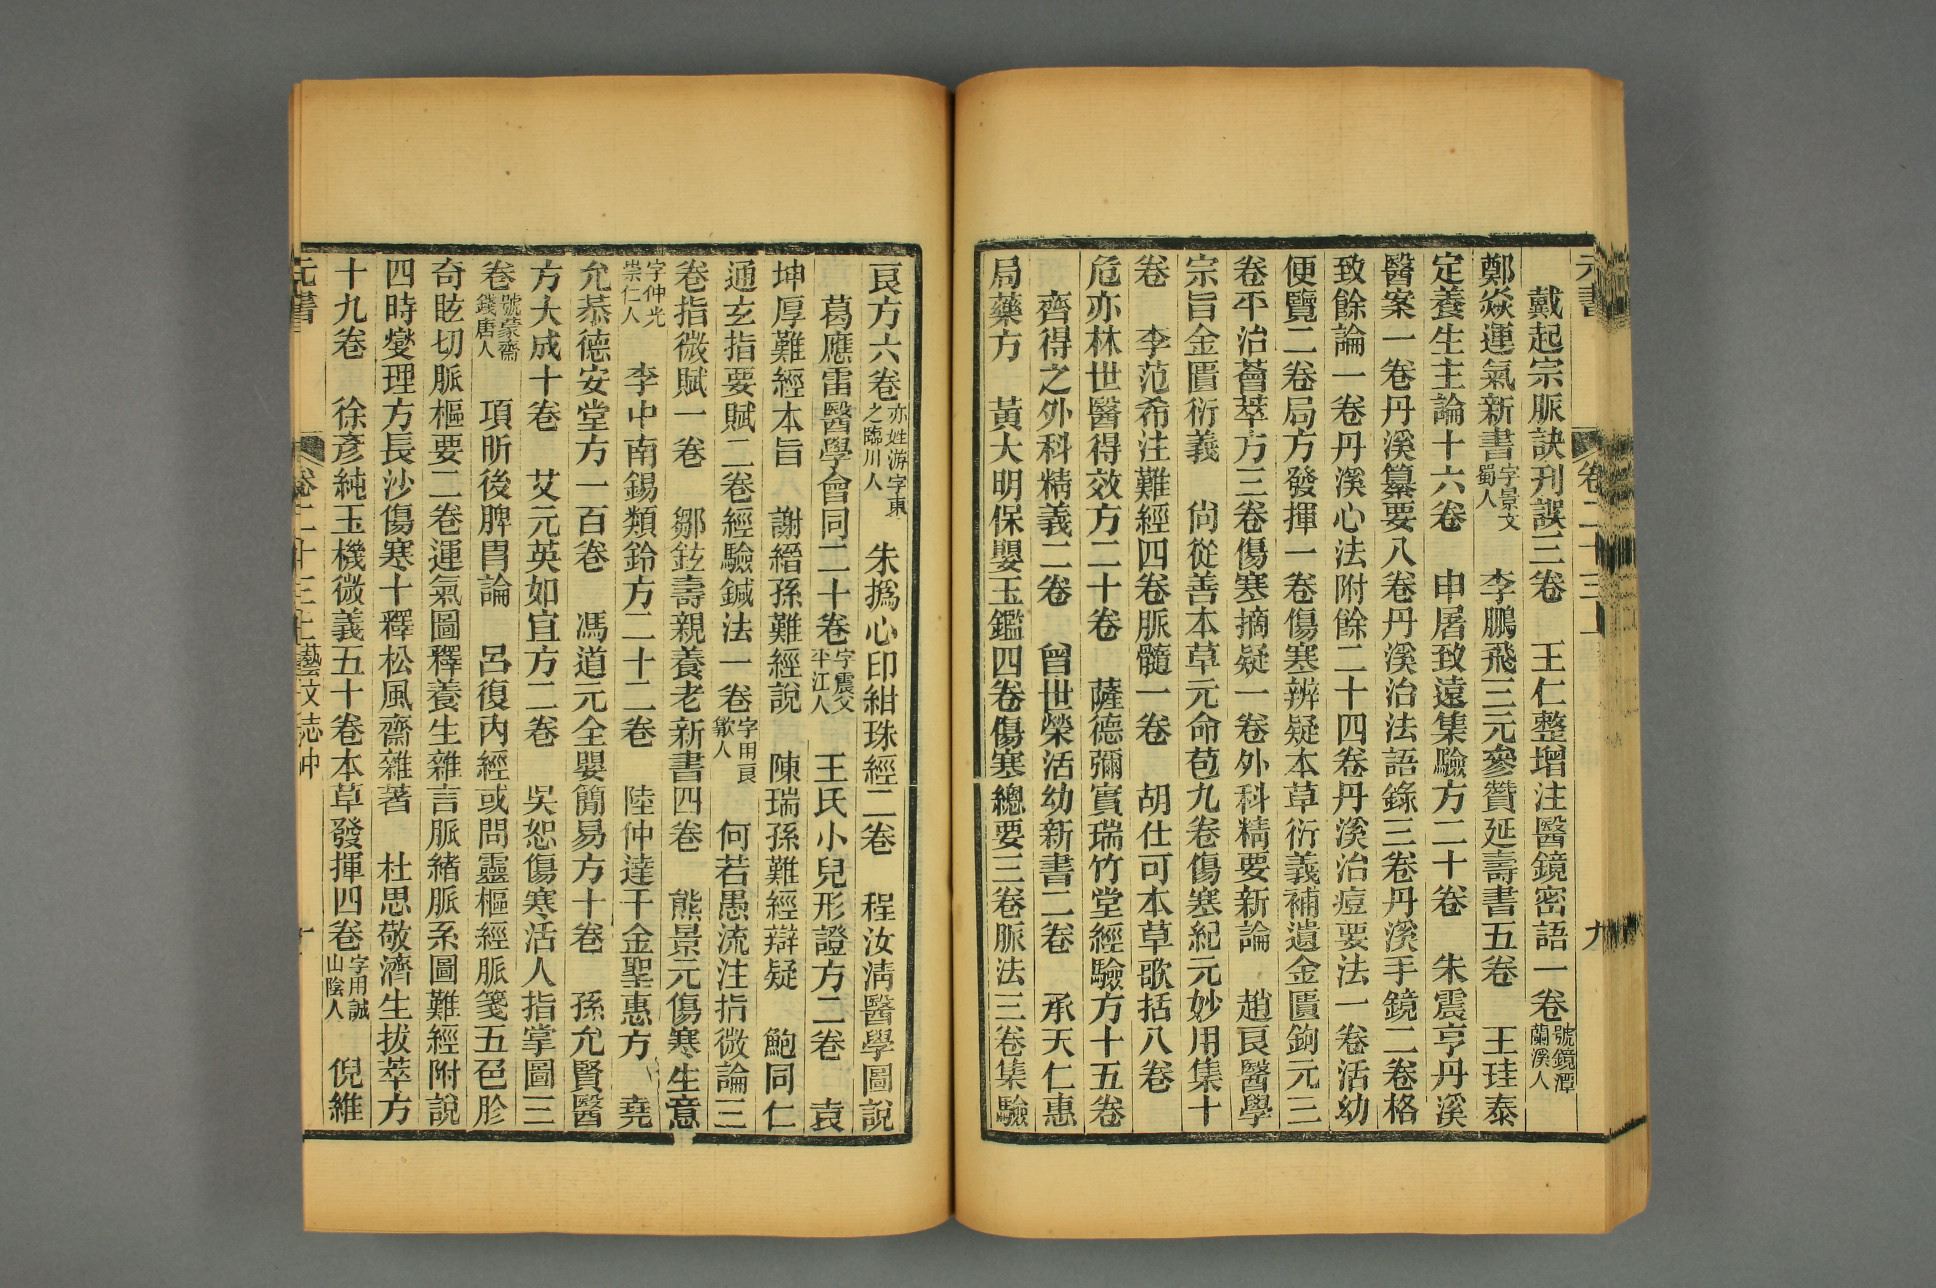 戴起宗脈訣刋誤三卷　王仁整增注醫鏡密語一卷號鏡潭蘭溪人
鄭焱運氣新書字景文蜀人　李鵬飛三元參贊延壽書五卷　王珪泰
定養生主論十六卷　申屠致遠集驗方二十卷　朱震亨丹溪
醫案一卷丹溪纂要八卷丹溪治法語錄三卷丹溪手鏡二卷格
致餘論一卷丹溪心法附餘二十四卷丹溪治痘要法一卷活幼
便覽二卷局方發揮一卷傷寒辨疑本草衍義補遺金匱鉤元三
卷平治薈萃方三卷傷寒摘疑一卷外科精要新論　趙良醫學
宗旨金匱衍義　尙從善本草元命苞九卷傷寒紀元妙用集十
卷　李范希注難經四卷脈髓一卷　胡仕可本草歌括八卷
危亦林世醫得效方二十卷　薩德彌實瑞竹堂經驗方十五卷
齊得之外科精義二卷　曾世榮活幼新書二卷　承天仁惠
局藥方　黃大明保嬰玉鑑四卷傷寒總要三卷脈法三卷集驗
元書　卷二十三上　九
良方六卷亦姓游字東之臨川人　朱撝心印紺珠經二卷　程汝淸醫學圖說
葛應雷醫學會同二十卷字震父平江人　王氏小兒形證方二卷　袁
坤厚難經本旨　謝縉孫難經說　陳瑞孫難經辯疑　鮑同仁
通玄指要賦二卷經驗鍼法一卷字用良歙人　何若愚流注指微論三
卷指微賦一卷　鄒鉉壽親養老新書四卷　熊景元傷寒生意
字仲光崇仁人　李中南錫類鈴方二十二卷　陸仲達千金聖惠方　堯
允恭德安堂方一百卷　馮道元全嬰簡易方十卷　孫允賢醫
方大成十卷　艾元英如宜方二卷　吳恕傷寒活人指掌圖三
卷號蒙齋錢唐人　項昕後脾胃論　呂復內經或問靈樞經脈箋五色胗
奇眩切脈樞要二卷運氣圖釋養生雜言脈緒脈系圖難經附說
四時燮理方長沙傷寒十釋松風齋雜著　杜思敬濟生拔萃方
十九卷　徐彥純玉機微義五十卷本草發揮四卷字用誠山陰人　倪維
元書　卷二十三上藝文志中